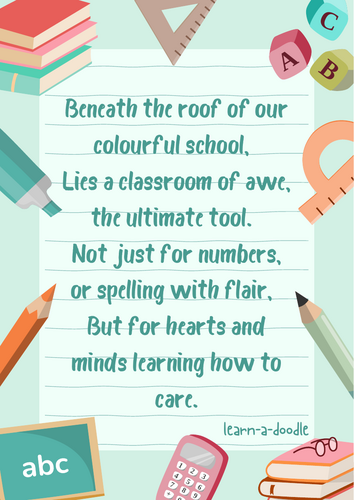 C
A
B
Beneath the roof of our
colourful school,
Lies a classroom of awe,
the ultimate tool.
Not just for numbers,
or spelling with flair,
But for hearts and
minds learning how to
care.
learn-a-doodle
abc
1 2 3
4 5 6
7 8 9